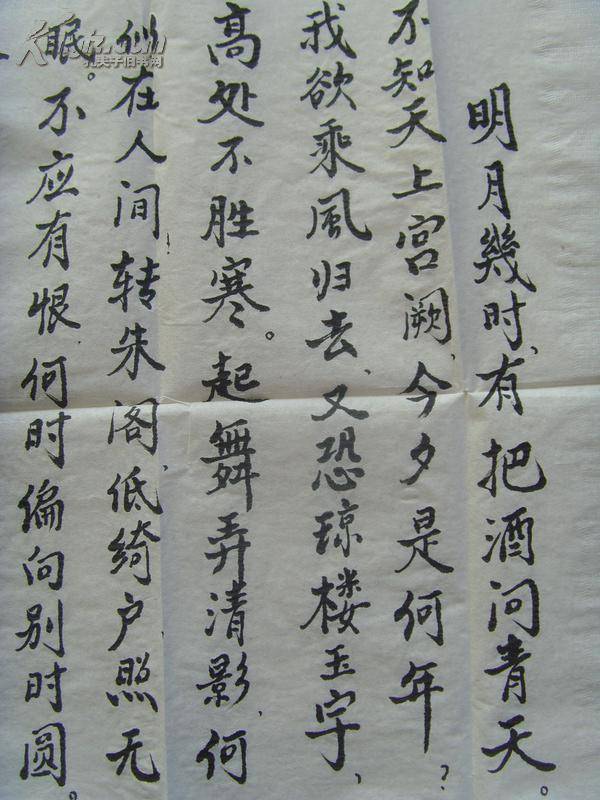 明月幾时、有把酒问青天。
不知天上宫阙、今夕是何年？
我欲乘風归去、又恐琼楼玉宇、
高处不胜寒。起舞弄清影、何
似在人间转朱阁、低绮户照无
眠。不应有恨、何时偏向别时圆。
孔夫子旧书网